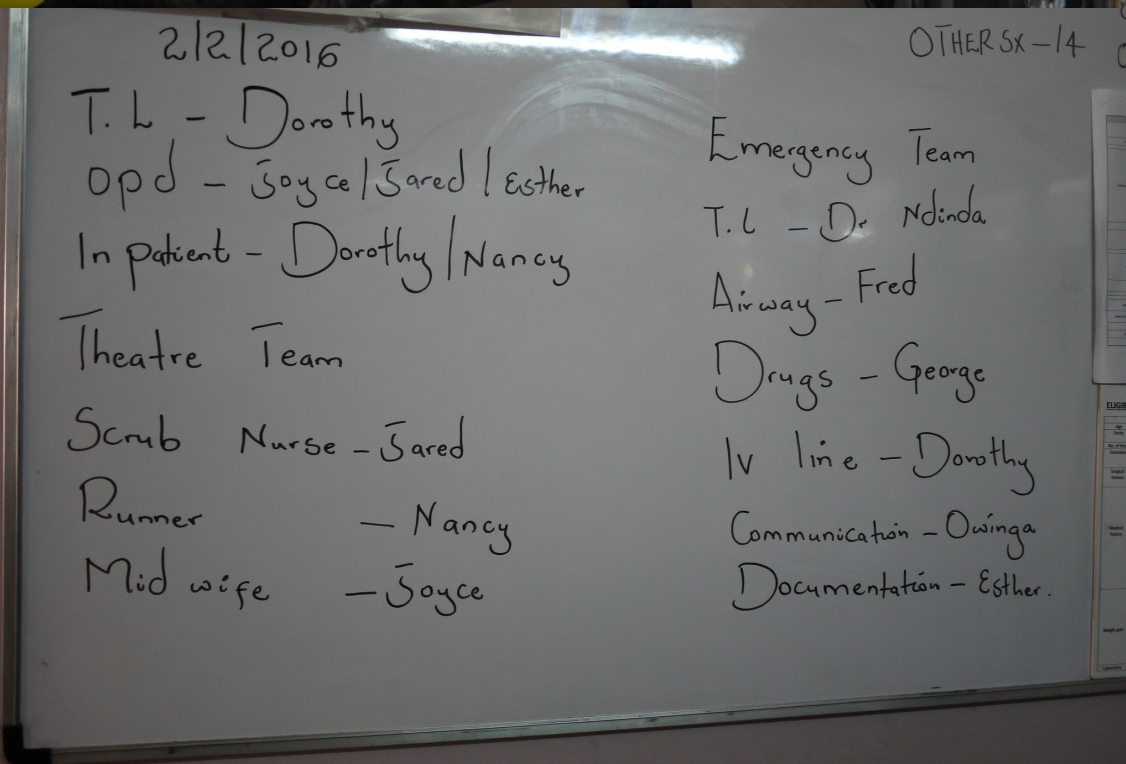 2/2/2016
T.L - Dorothy
Opd - Joyce/Jared/Esther
In patient - Dorothy/Nancy
Theatre Team
Scrub Nurse - Jared
Runner - Nancy
Mid wife - Joyce
OTHER SX - 14
Emergency Team
T.L - Dr Ndinda
Airway - Fred
Drugs - George
IV line - Dorothy
Communication - Owinga
Documentation - Esther.